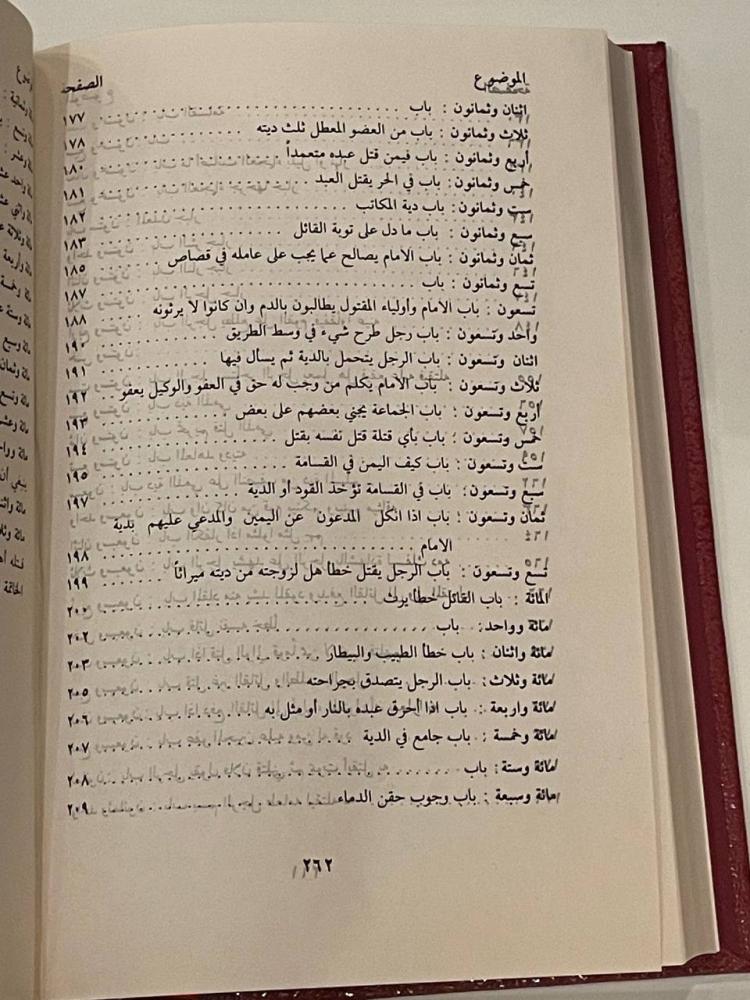 الموضوع الصفحة
اثنان وثمانون : باب . . . . . . . . ١٧٧
ثلاث وثمانون : باب من العضو المعطل ثلث ديته . . . . . . . . ١٧٨
أربع وثمانون : باب فيمن قتل عبده متعمداً . . . . . . . . ١٨٠
خمس وثمانون : باب في الحر يقتل العبد . . . . . . . . ١٨١
ست وثمانون : باب دية المكاتب . . . . . . . . ١٨٢
سبع وثمانون : باب ما دل على توبة القائل . . . . . . . . ١٨٣
ثمان وثمانون : باب الامام يصالح عما يجب على عامله في قصاص . . ١٨٥
تسع وثمانون : باب . . . . . . . . ١٨٧
تسعون : باب الامام وأولياء المقتول يطالبون بالدم وان كانوا لا يرثونه ١٨٨
واحد وتسعون : باب رجل طرح شيء في وسط الطريق . . . . . . . . ١٩٠
اثنان وتسعون : باب الرجل يتحمل بالدية ثم يسأل فيها . . . . . . . . ١٩١
ثلاث وتسعون : باب الامام يكلم من وجب له حق في العفو والوكيل يعفو . . ١٩٢
أربع وتسعون : باب الجماعة يجني بعضهم على بعض . . . . . . . . ١٩٣
خمس وتسعون : باب بأي قتلة قتل نفسه بقتل . . . . . . . . ١٩٤
ست وتسعون : باب كيف اليمن في القسامة . . . . . . . . ١٩٥
سبع وتسعون : باب في القسامة تؤخذ القود أو الدية . . . . . . . . ١٩٧
ثمان وتسعون : باب اذا انكل المدعون عن اليمين والمدعي عليهم بدية
الامام . . . . . . . . ١٩٨
تسع وتسعون : باب الرجل يقتل خطأ هل لزوجته من ديته ميراثاً . . ١٩٩
المائة : باب القائل خطأ يرث . . . . . . . . ٢٠٠
مائة وواحد : باب . . . . . . . . ٢٠٢
مائة واثنان : باب خطأ الطبيب والبيطار . . . . . . . . ٢٠٣
مائة وثلاث : باب الرجل يتصدق بجراحته . . . . . . . . ٢٠٥
مائة واربعة : باب اذا أحرق عبده بالنار أو مثل به . . . . . . . . ٢٠٦
مائة وخمسة : باب جامع في الدية . . . . . . . . ٢٠٧
مائة وستة : باب . . . . . . . . ٢٠٨
مائة وسبعة : باب وجوب حقن الدماء . . . . . . . . ٢٠٩
٢٦٢